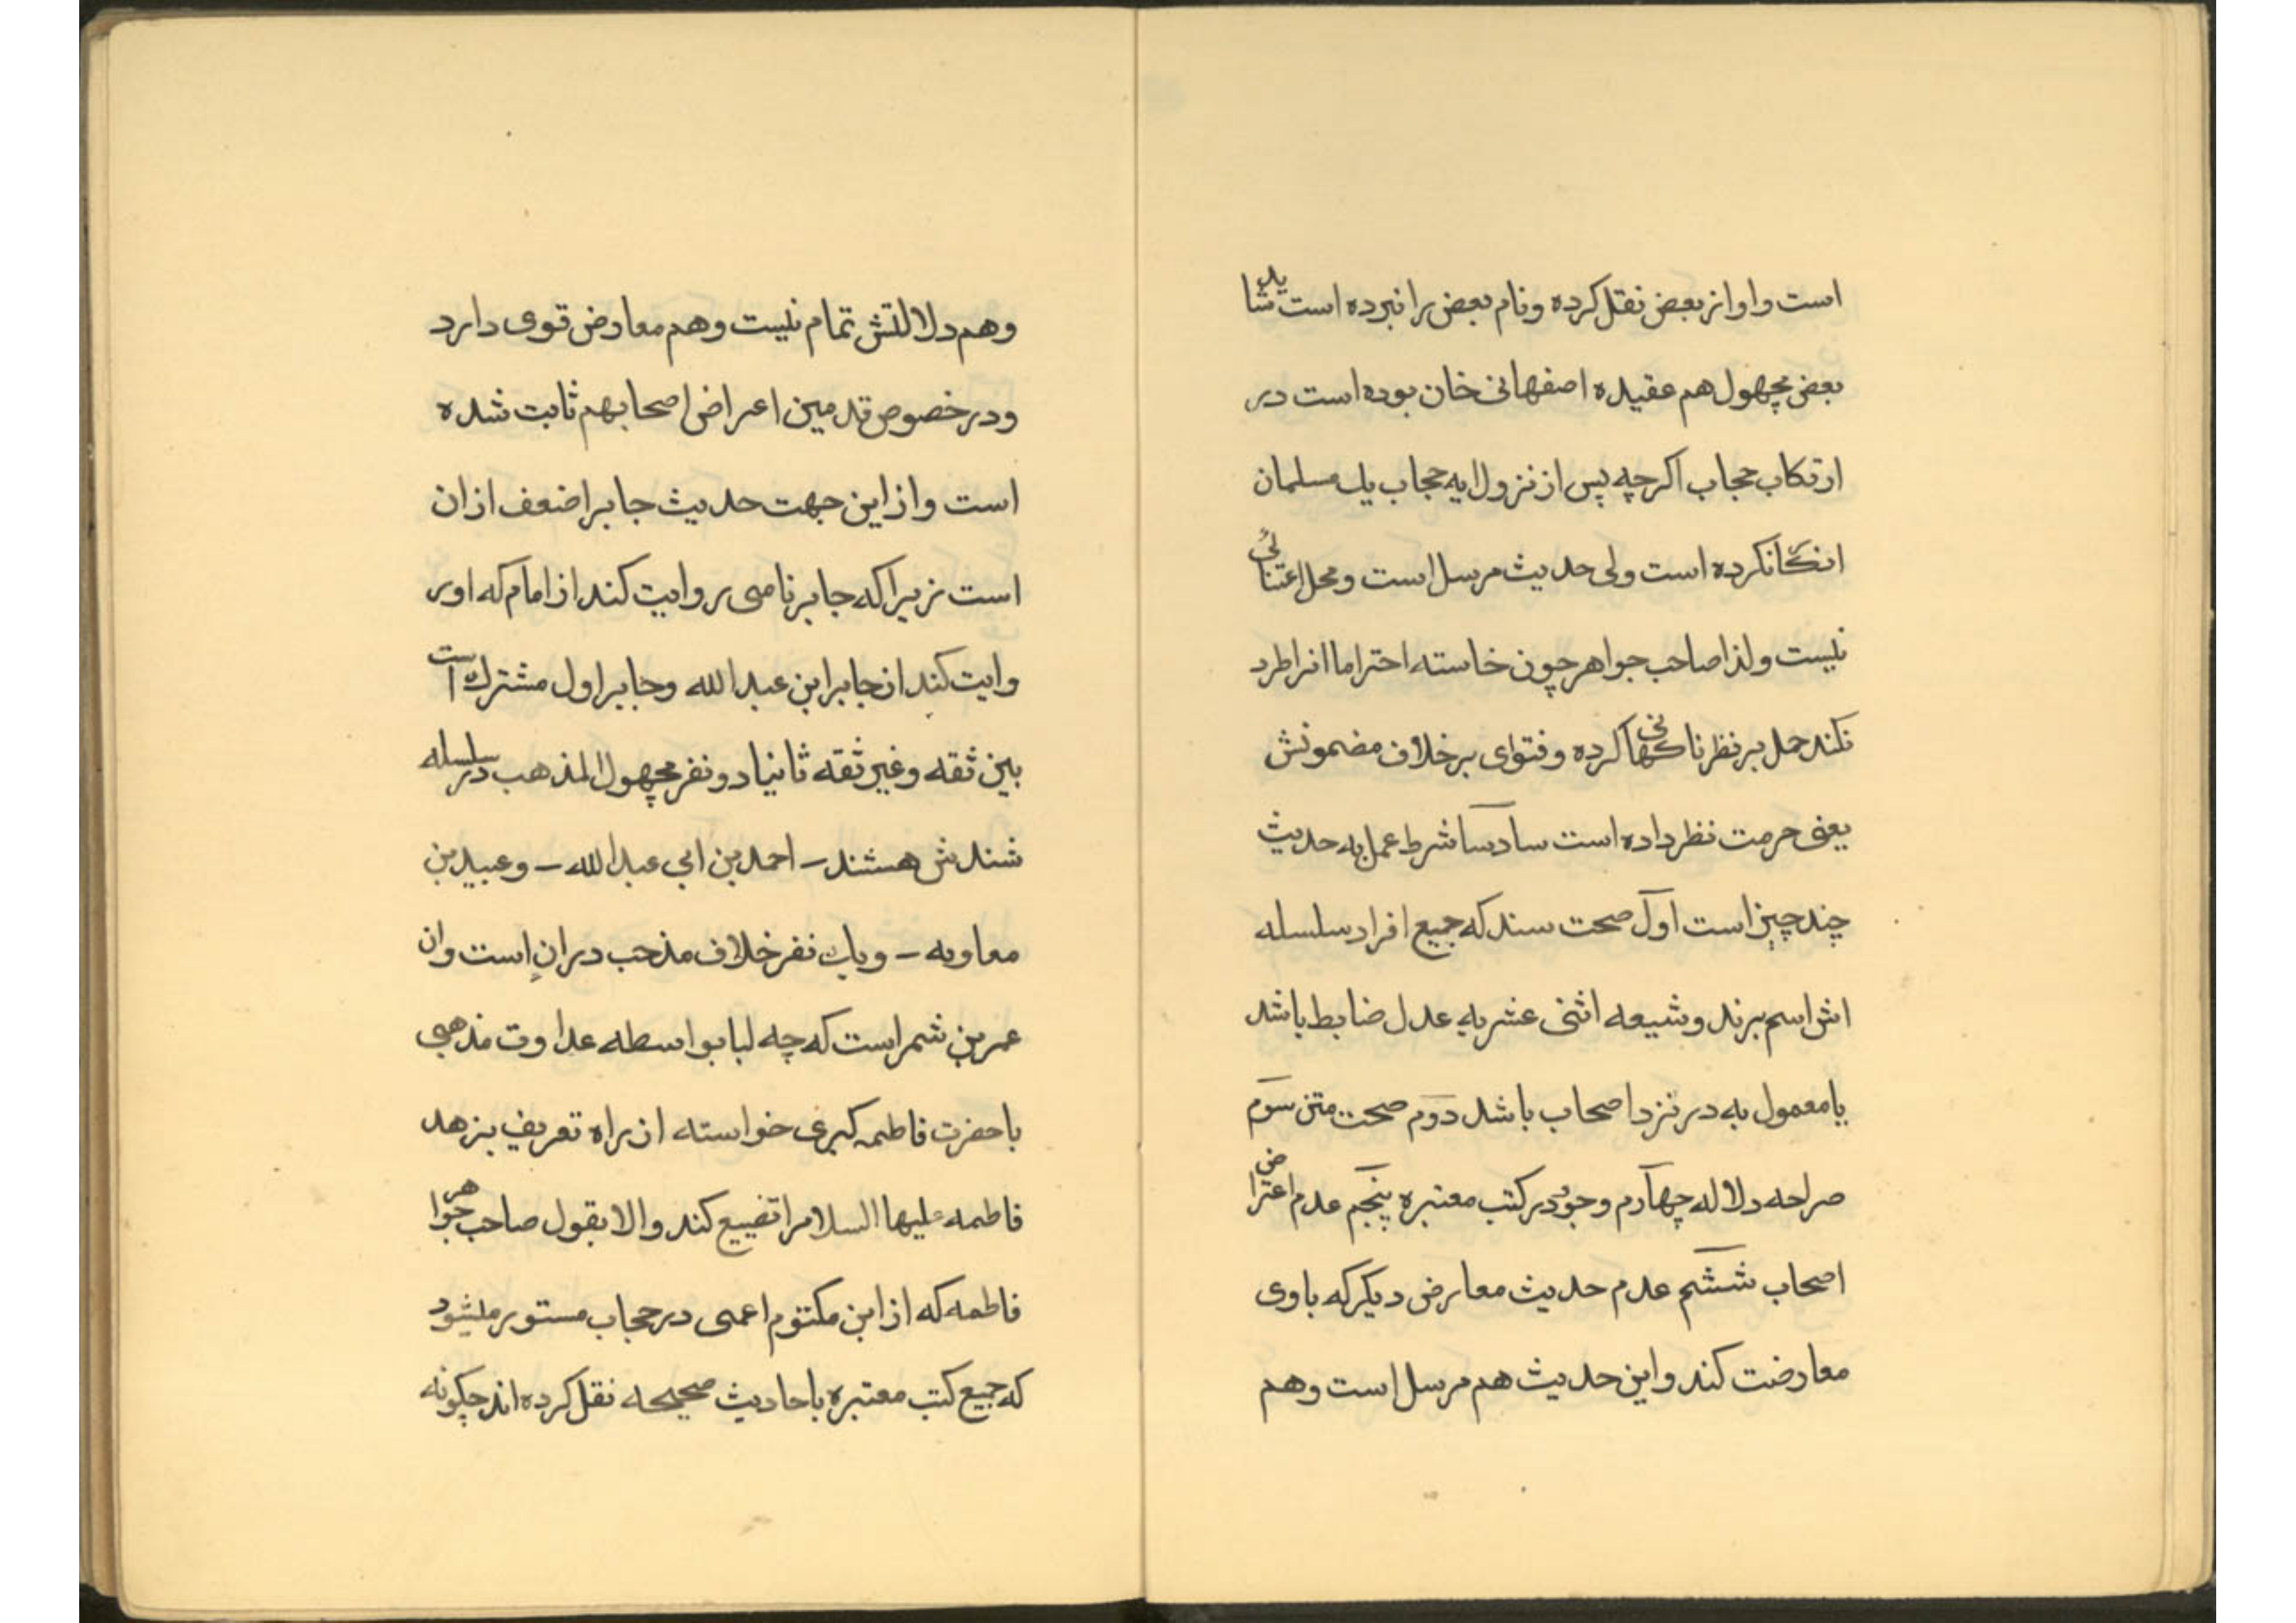 است واو از بعض نقل کرده ونام بعض را نبرده است شاید
بعض مجهول هم عقیده اصفهانی خان بوده است در
ارتکاب حجاب اکرچه پس از نزول ایه حجاب یک مسلمان
انکارنکرده است ولی حدیث مرسل است ومحل اعتنائی
نیست ولذا صاحب جواهر چون خاسته احتراما انرا طرد
نکند حمل بر نظر ناکهانی کرده وفتوای برخلاف مضمونش
یعنی حرمت نظر داده است سادساً شرط عمل به حدیث
چند چیز است اوّل صحت سند که جمیع افراد سلسله
اش اسم برند وشیعه اثنی عشریه عدل ضابط باشد
یا معمول به در نزد اصحاب باشد دوّم صحت متن سوّم
صراحه دلاله چهآرم وجود در کتب معتبره پنجم عدم اعتراض
اصحاب ششم عدم حدیث معارض دیکر که باوی
معارضت کند واین حدیث هم مرسل است وهم
وهم دلالتش تمام نیست وهم معارض قوی دارد
ودر خصوص قدمین اعراض اصحابهم ثابت شده
است واز این جهت حدیث جابر اضعف از ان
است زیرا که جابر نامی روایت کند از امام که او ر
وایت کند از جابر ابن عبد الله وجابر اول مشترک است
بین ثقه وغیر ثقه ثانیا دو نفر مجهول المذهب در سلسله
شندش هستند – احمد بن ابی عبد الله – وعبید بن
معاویه – ویک نفر خلاف مذحب در ان است وان
عمر بن شمر است که چه لبا بواسطه عداوت مذهبی
با حضرت فاطمه کبری خواسته از راه تعریف بزهد
فاطمه علیها السلام را تضییع کند والا بقول صاحب جواهر
فاطمه که از ابن مکتوم اعمی در حجاب مستور میشود
که جمیع کتب معتبره باحادیث صحیحه نقل کرده اند چکونه